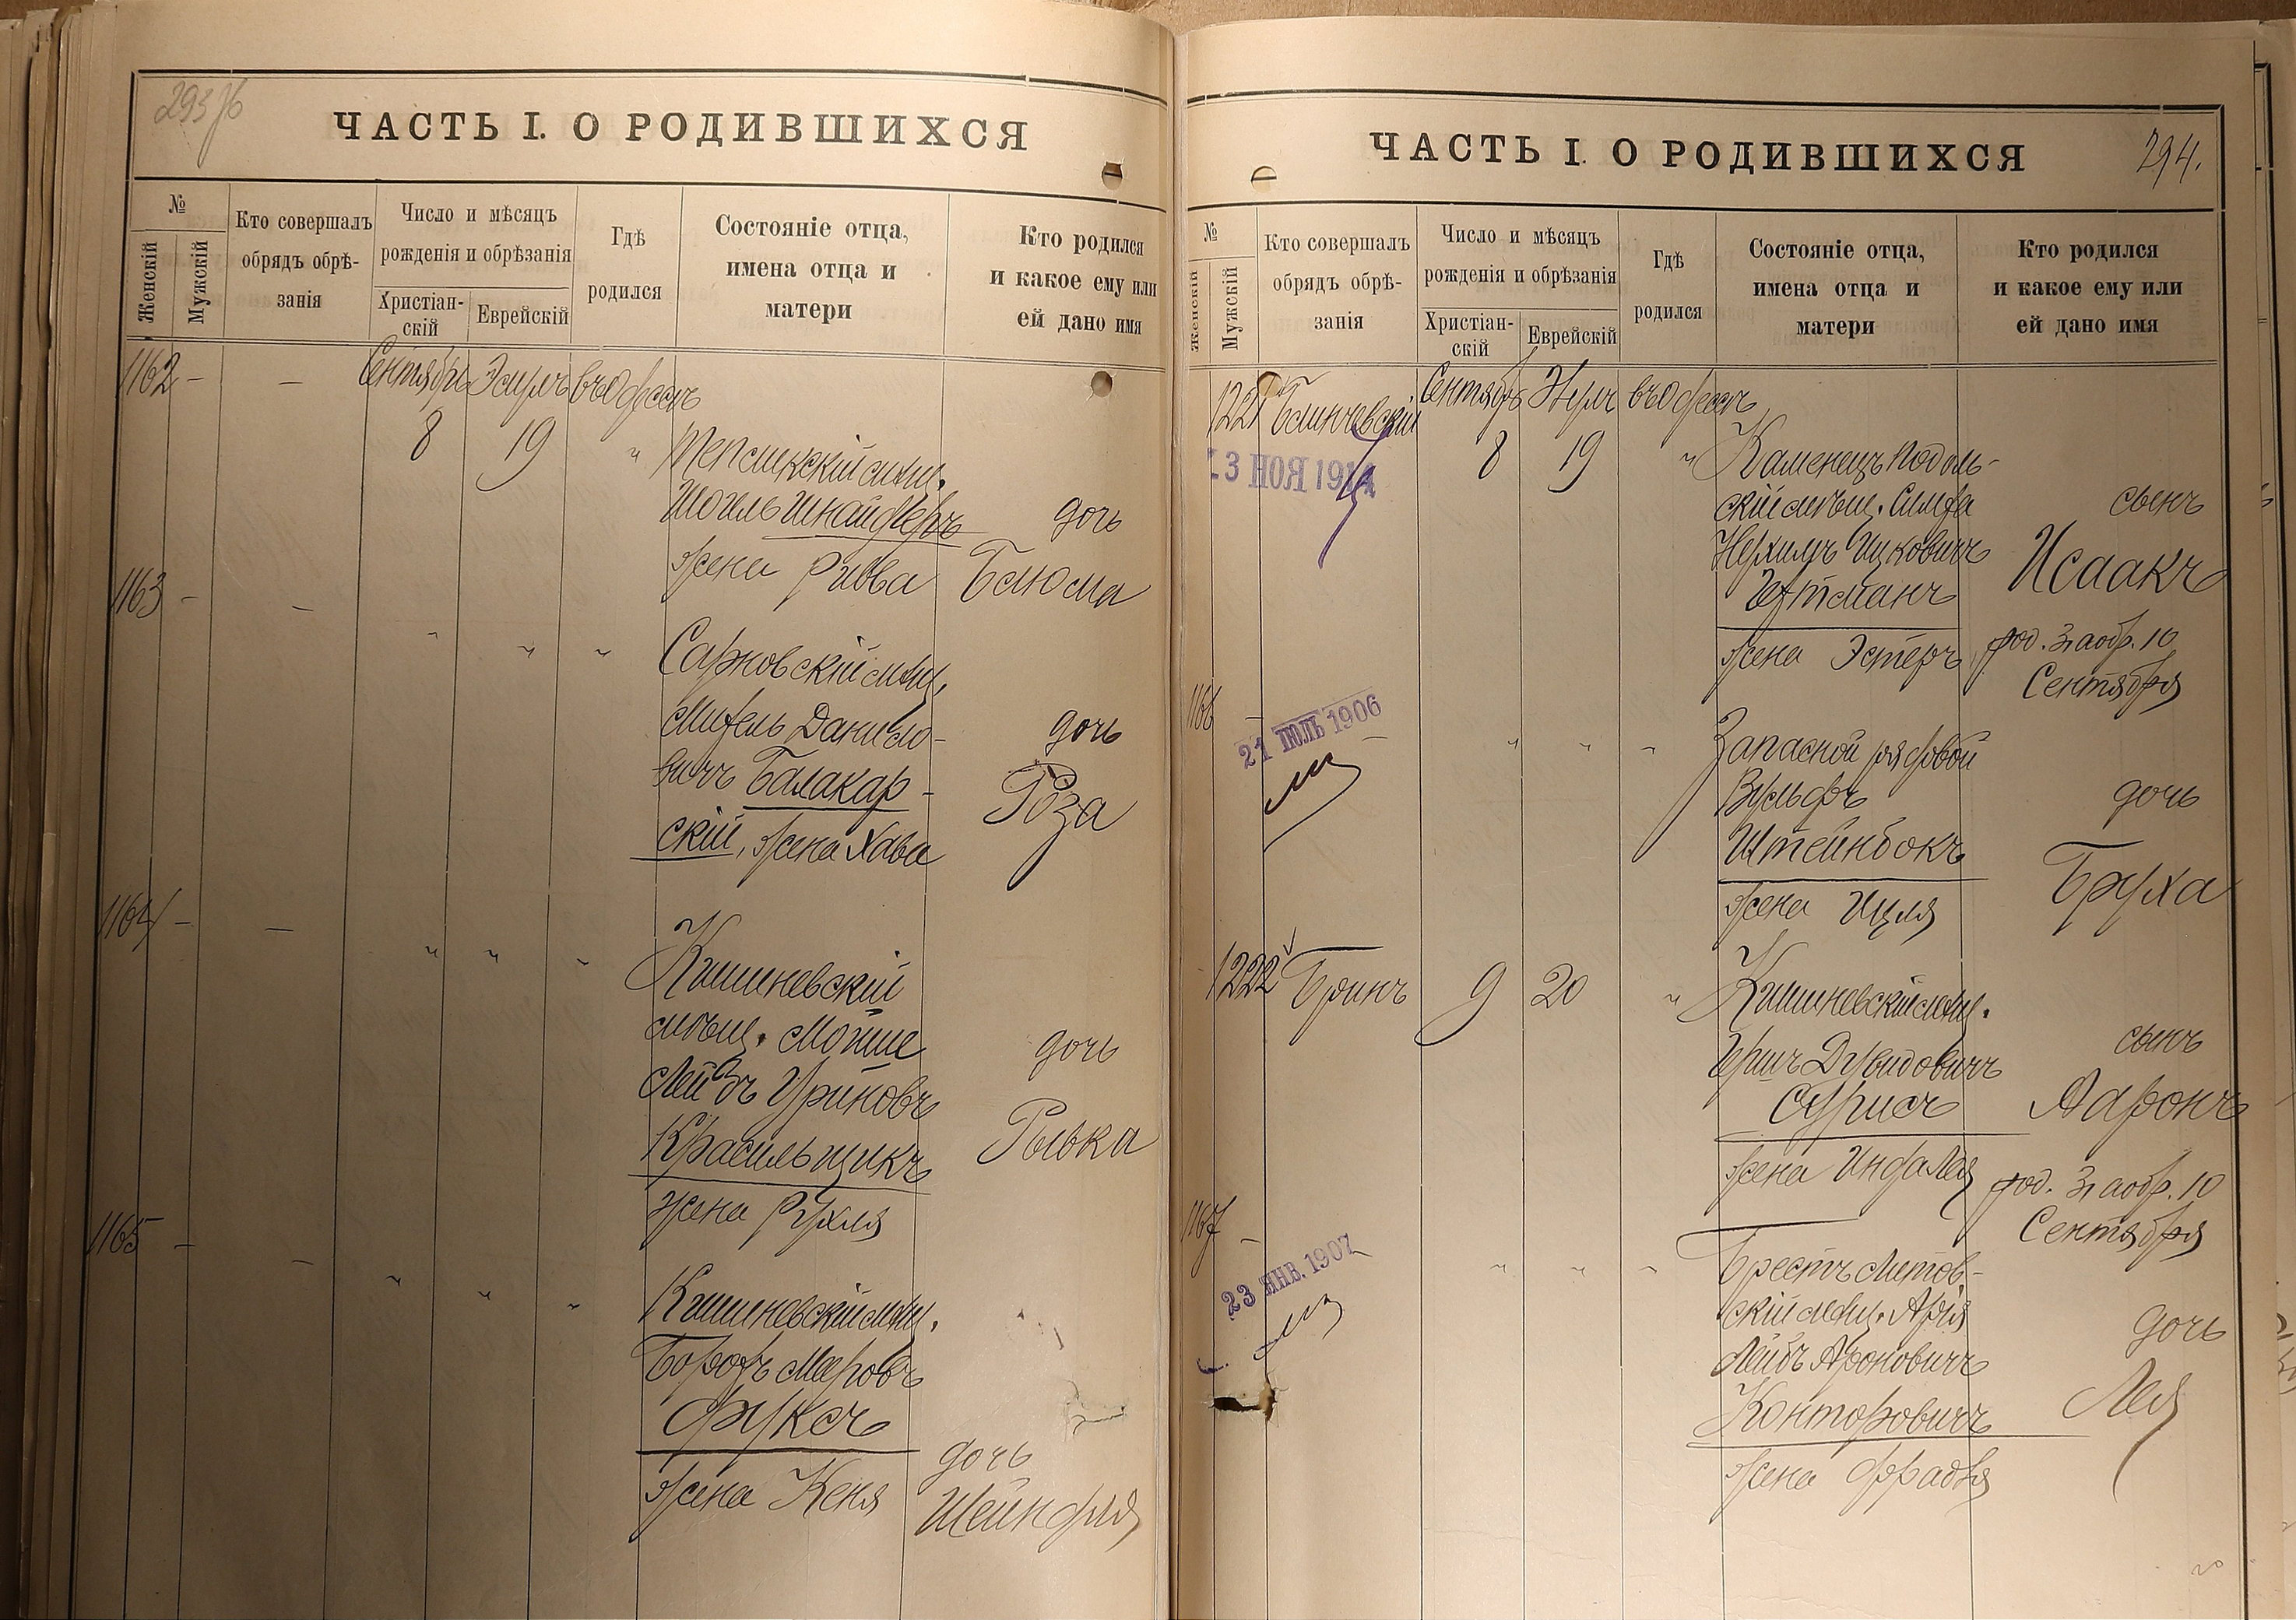 293 об
ЧАСТЬ I. О РОДИВШИХСЯ
№
Женскій
Мужскій
Кто совершалъ
обрядъ обрѣ-
занія
Число и мѣсяцъ
рожденія и обрѣзанія
Христіан-
скій
Еврейскій
Гдѣ
родился
Состояніе отца,
имена отца и
матери
Кто родился
и какое ему или
ей дано имя
1162 - - Сентябрь Элулъ въ Одессѣ
8 19 "
мѣщ.
Шнайдеръ
жена Ривва
дочь
Блюма
1163 - - " " "
Сарновскій мѣщ.
Данило-
вичъ Балакар-
скій, жена Хава
дочь
Роза
1164 - - " " "
Кишиневскій
мѣщ. Мойше
Лейбъ
Красильщикъ
жена Рухля
дочь
Рывка
1165 - - " " "
Кишиневскій мѣщ.
Борохъ Мееровъ
Фуксъ
жена Кеня
дочь
Шейндля
ЧАСТЬ I. О РОДИВШИХСЯ
294.
№
Женскій
Мужскій
Кто совершалъ
обрядъ обрѣ-
занія
Число и мѣсяцъ
рожденія и обрѣзанія
Христіан-
скій
Еврейскій
Гдѣ
родился
Состояніе отца,
имена отца и
матери
Кто родился
и какое ему или
ей дано имя
1221 Сентябрь Элулъ въ Одессѣ
НОЯ
8 19 "
Каменецъ Подоль-
скій мѣщ. Симха
Ицковичъ
Гехтманъ
жена Эстеръ
сынъ
Исаакъ
род. 3, а обр. 10
Сентября
1166 - - " " -
21 ІЮЛЬ 1906
Запасной рядовой
Вульфъ
Штейнбокъ
жена Циля
дочь
Бруха
1222 Бринъ 9 20 "
Кишиневскій мѣщ.
Гершъ Дувидовичъ
жена
сынъ
Ааронъ
род. 3, а обр. 10
Сентября
1167 - " " -
23 ЯНВ. 1907
Брестъ Литов-
скій мѣщ. Арія
Лейбъ Ароновичъ
Конторовичъ
жена Фрадля
дочь
Лея